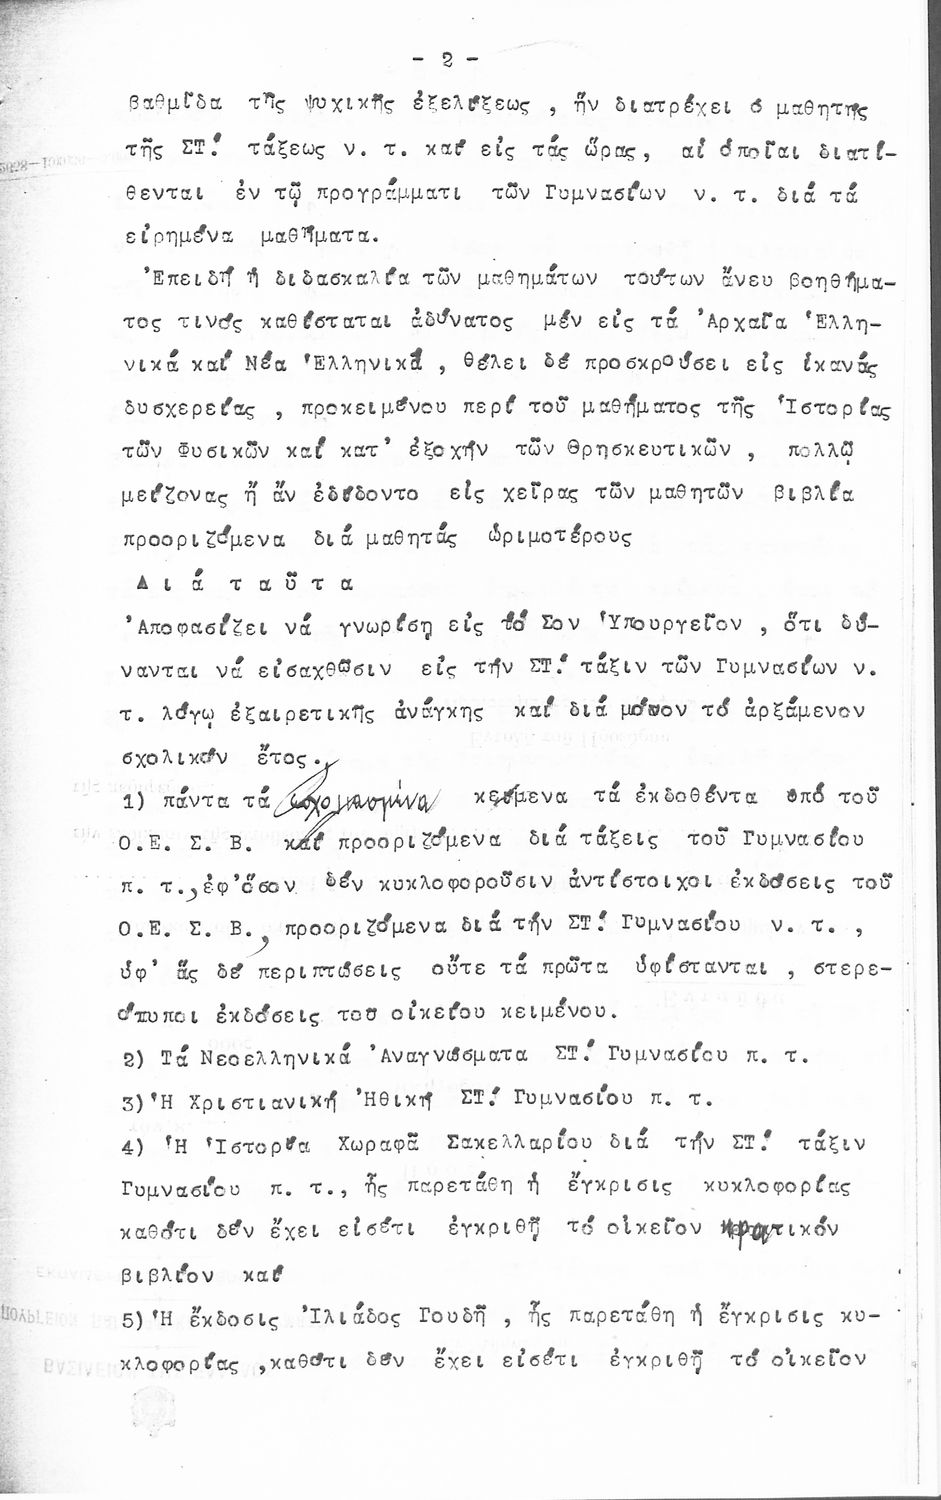 - 2 -
βαθμῖδα τῆς ψυχικῆς ἐξελίξεως , ἥν διατρέχει ὁ μαθητής
τῆς ΣΤ΄. τάξεως ν. τ. καί εἰς τάς ὥρας, αἱ ὁποῖαι διατί-
θενται ἐν τῷ προγράμματι τῶν Γυμνασίων ν. τ. διά τά
εἰρημένα μαθήματα.
Ἐπειδή ἡ διδασκαλία τῶν μαθημάτων τούτων ἄνευ βοηθήμα-
τος τινός καθίσταται ἀδύνατος μέν εἰς τά Ἀρχαῖα Ἑλλη-
νικά καί Νέα Ἑλληνικά , θέλει δέ προσκρούσει εἰς ἱκανάς
δυσχερείας , προκειμένου περί τοῦ μαθήματος τῆς Ἱστορίας
τῶν Φυσικῶν καί κατ' ἐξοχήν τῶν Θρησκευτικῶν , πολλῷ
μείζονας ἤ ἄν ἐδίδοντο εἰς χεῖρας τῶν μαθητῶν βιβλία
προοριζόμενα διά μαθητάς ὡριμοτέρους
Δ ι ά τ α ῦ τ α
Ἀποφασίζει νά γνωρίσῃ εἰς τό Σον Ὑπουργεῖον , ὅτι δύ-
νανται νά εἰσαχθῶσιν εἰς τήν ΣΤ΄. τάξιν τῶν Γυμνασίων ν.
τ. λόγῳ ἐξαιρετικῆς ἀνάγκης καί διά μόνον τό ἀρξάμενον
σχολικόν ἔτος.
1) πάντα τά κείμενα τά ἐκδοθέντα ὑπό τοῦ
Ο.Ε. Σ. Β. καί προοριζόμενα διά τάξεις τοῦ Γυμνασίου
π. τ., ἐφ'ὅσον δέν κυκλοφοροῦσιν ἀντίστοιχοι ἐκδόσεις τοῦ
Ο.Ε. Σ. Β., προοριζόμενα διά τήν ΣΤ΄. Γυμνασίου ν. τ. ,
ὑφ' ἅς δέ περιπτώσεις οὔτε τά πρῶτα ὑφίστανται , στερε-
ότυποι ἐκδόσεις του οἰκείου κειμένου.
2) Τά Νεοελληνικά Ἀναγνώσματα ΣΤ΄. Γυμνασίου π. τ.
3) Ἡ Χριστιανική Ἠθική ΣΤ΄. Γυμνασίου π. τ.
4) Ἡ Ἱστορία Χωραφᾶ Σακελλαρίου διά τήν ΣΤ΄. τάξιν
Γυμνασίου π. τ., ἧς παρετάθη ἡ ἔγκρισις κυκλοφορίας
καθότι δέν ἔχει εἰσέτι ἐγκριθῆ τό οἰκεῖον κρατικόν
βιβλίον καί
5) Ἡ ἔκδοσις Ἰλιάδος Γουδῆ , ἧς παρετάθη ἡ ἔγκρισις κυ-
κλοφορίας ,καθότι δέν ἔχει εἰσέτι ἐγκριθῆ τό οἰκεῖον